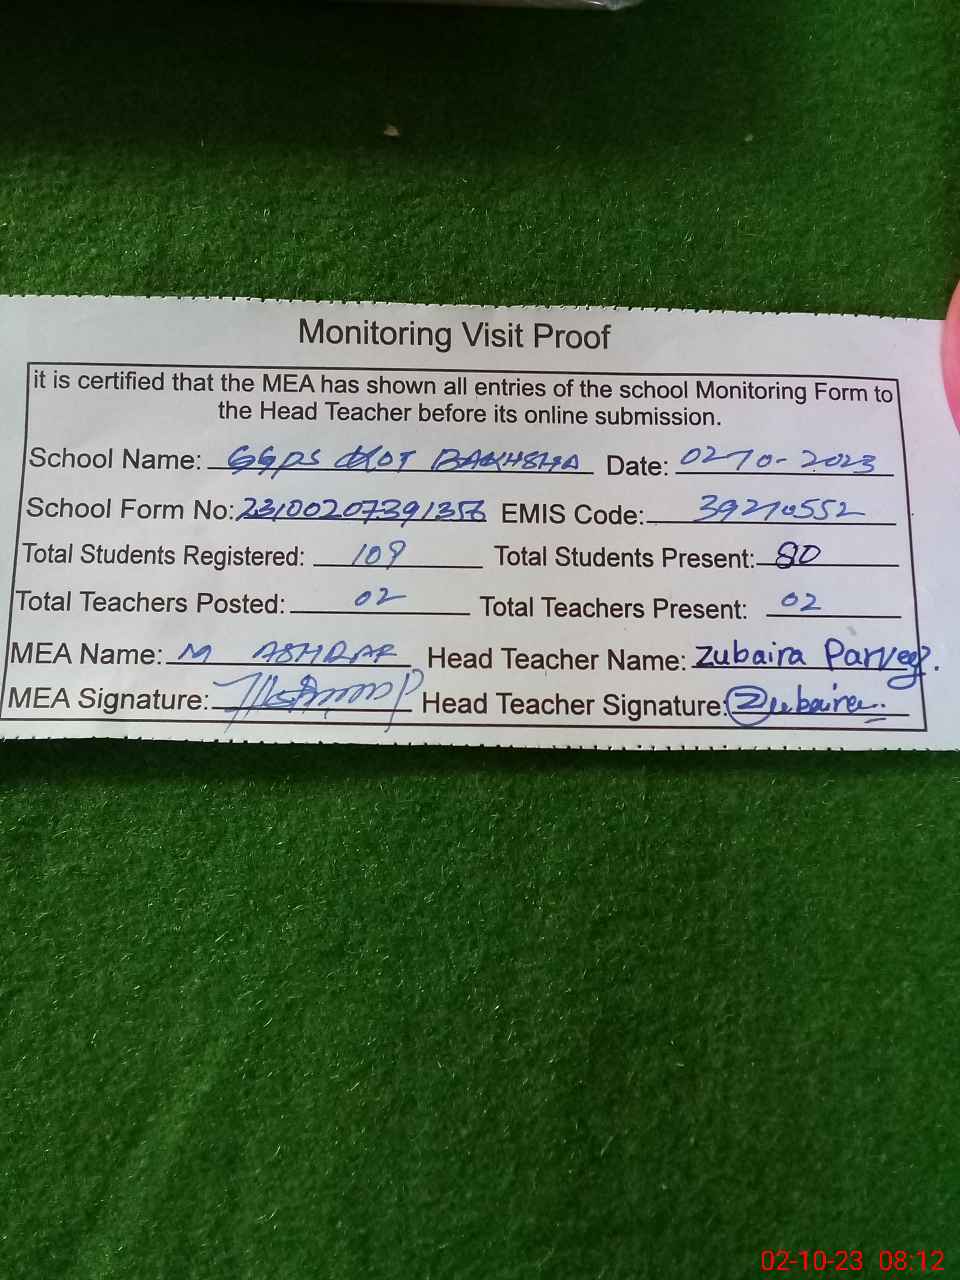 Monitoring Visit Proof
it is certified that the MEA has shown all entries of the school Monitoring Form to
the Head Teacher before its online submission.
School Name: GGPS KOT BAKHSHA Date: 02-10-2023
School Form No: 2310020739135 EMIS Code: 39210552
Total Students Registered: 109 Total Students Present: 80
Total Teachers Posted: 02 Total Teachers Present: 02
MEA Name: M ASHRAF Head Teacher Name: Zubaira Parveez.
MEA Signature: Head Teacher Signature: Zubaira.
02-10-23 08:12